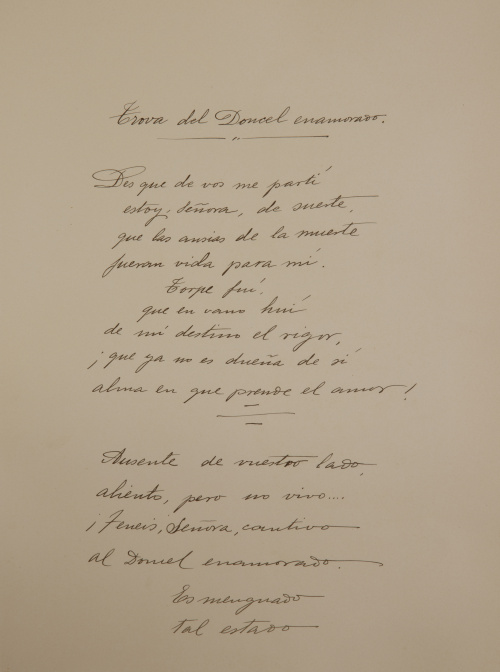 Trova del Doncel enamorado.
Des que de vos me partí
estoy, Señora, de suerte,
que las ansias de la muerte
fueran vida para mí.
Torpe fuí,
que en vano huí
de mi destino el rigor,
¡que ya no es dueña de sí
alma en que prende el amor!
Ausente de vuestro lado,
aliento, pero no vivo....
¡Teneis, Señora, cautivo
al Doncel enamorado.
Es menguado
tal estado